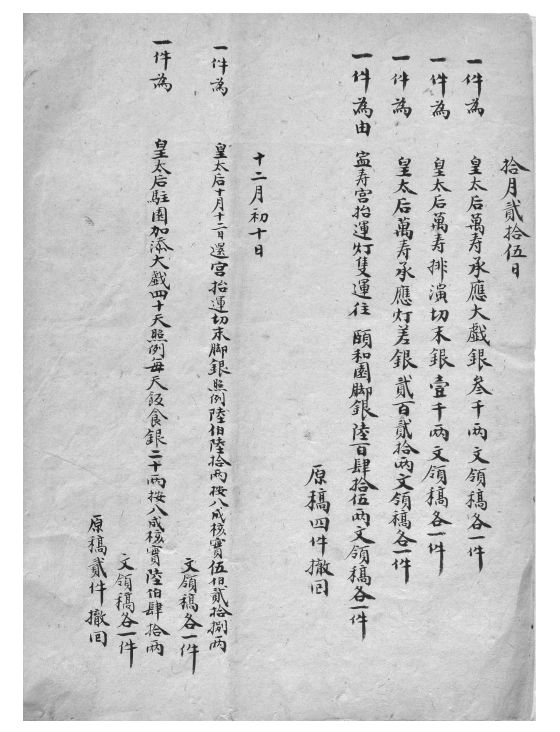 拾月貳拾伍日
一件為 皇太后萬壽承應大戲銀叄千兩文領稿各一件
一件為 皇太后萬壽排演切末銀壹千兩文領稿各一件
一件為 皇太后萬壽承應灯差銀貳百貳拾兩文領稿各一件
一件為由 寍寿宮抬運灯隻運往 頤和園脚銀陸百肆拾伍兩文領稿各一件
原稿四件撤回
十二月初十日
一件為 皇太后十月十二日還宮抬運切末脚銀照例陸伯陸拾兩按八成核實伍伯貳拾捌兩
文領稿各一件
一件為 皇太后駐園加添大戲四十天照例每天飯食銀二十兩按八成核實陸伯肆拾兩
文領稿各一件
原稿貳件撤回